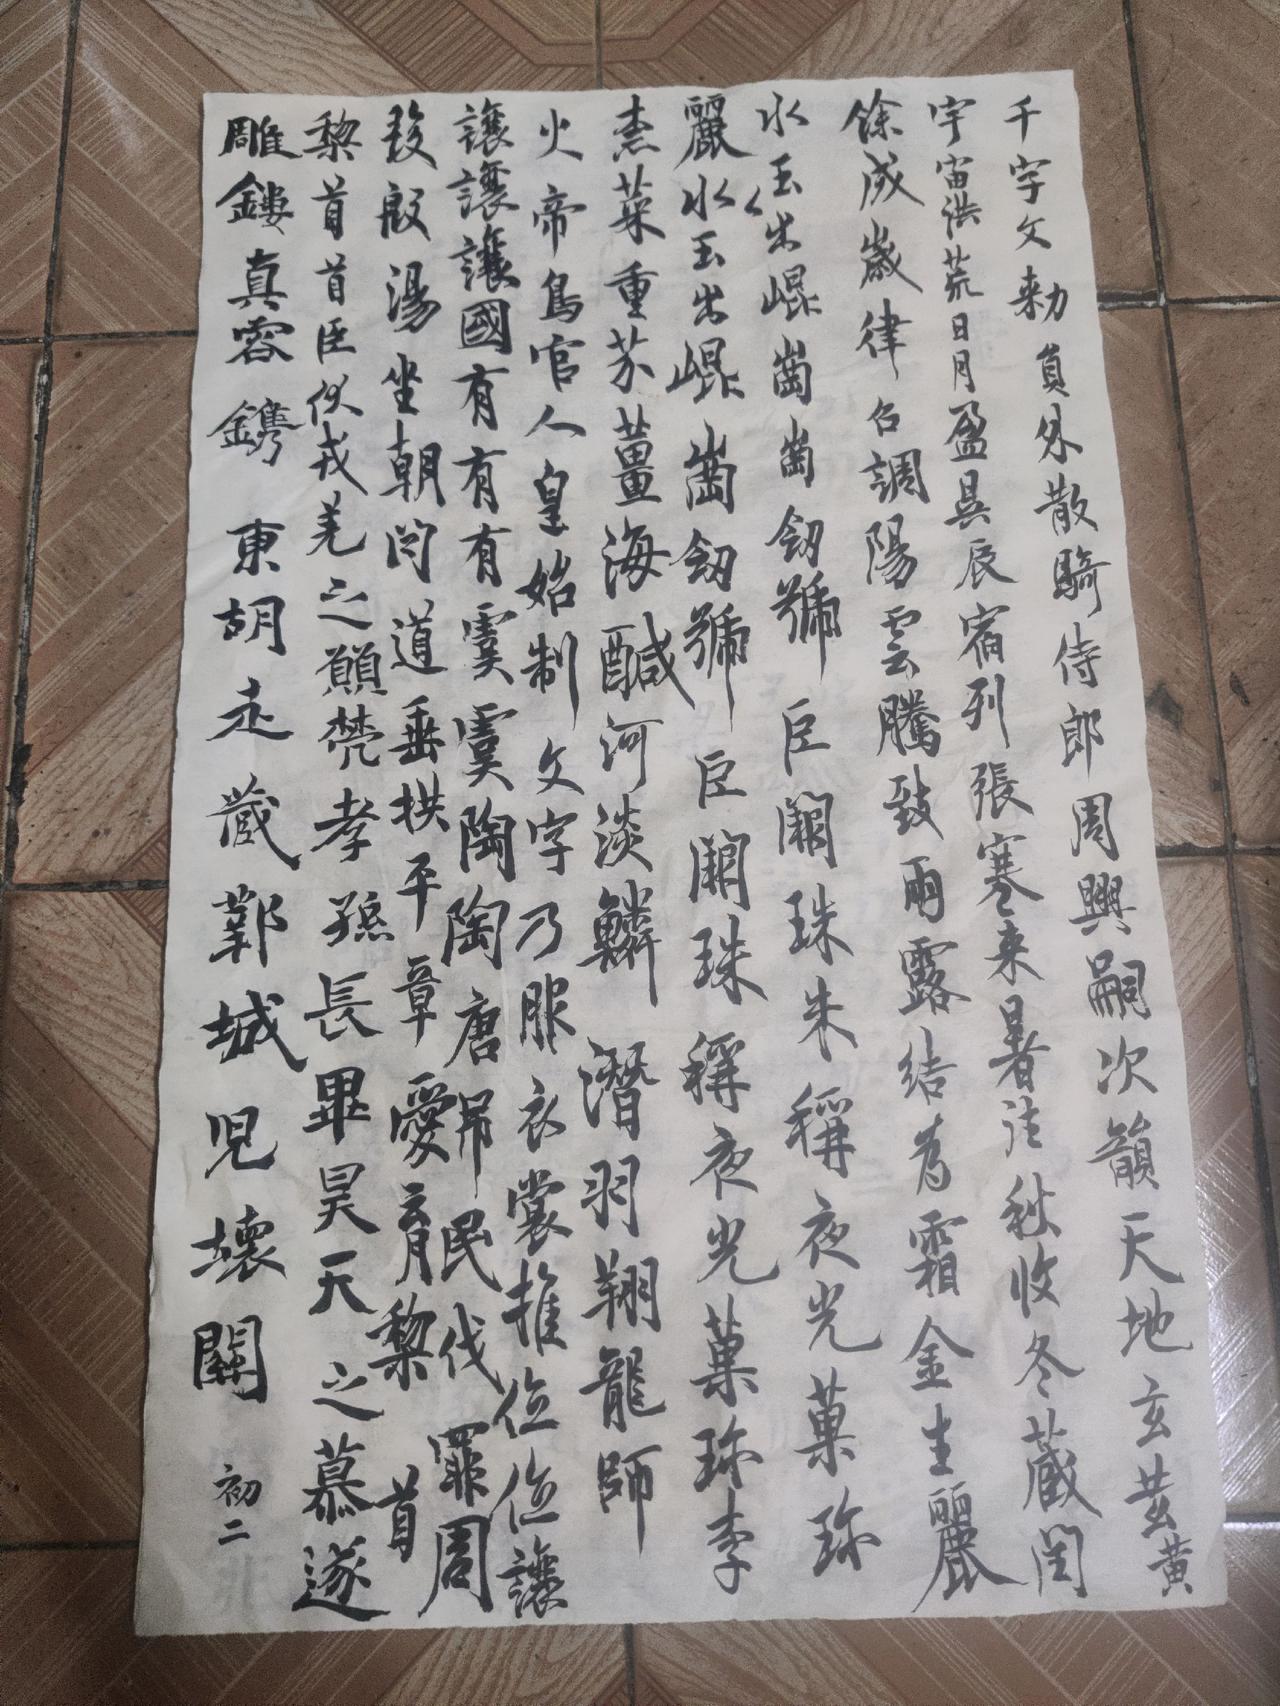 千字文勑員外散騎侍郎周興嗣次韻天地玄黃黃
宇宙洪荒日月盈昃辰宿列張寒来暑往秋收冬藏閏
餘成歲律召調陽雲騰致雨露结為霜金生麗
水玉出崐崗崗劒號巨闕珠朱稱夜光菓珎
麗水玉出崐崗劒號巨闕珠稱夜光菓珎李
柰菜重芥薑海醎河淡鱗潛羽翔龍師
火帝鳥官人皇始制文字乃服衣裳推位位讓
讓讓讓國有有有虞虞陶陶唐弔民伐罪周
發殷湯坐朝問道垂拱平章愛育黎首
黎首首臣伏戎羌之孝孫長畢昊天之慕遂
雕鏤真容鐫東胡走藏鄴城児壞關初二